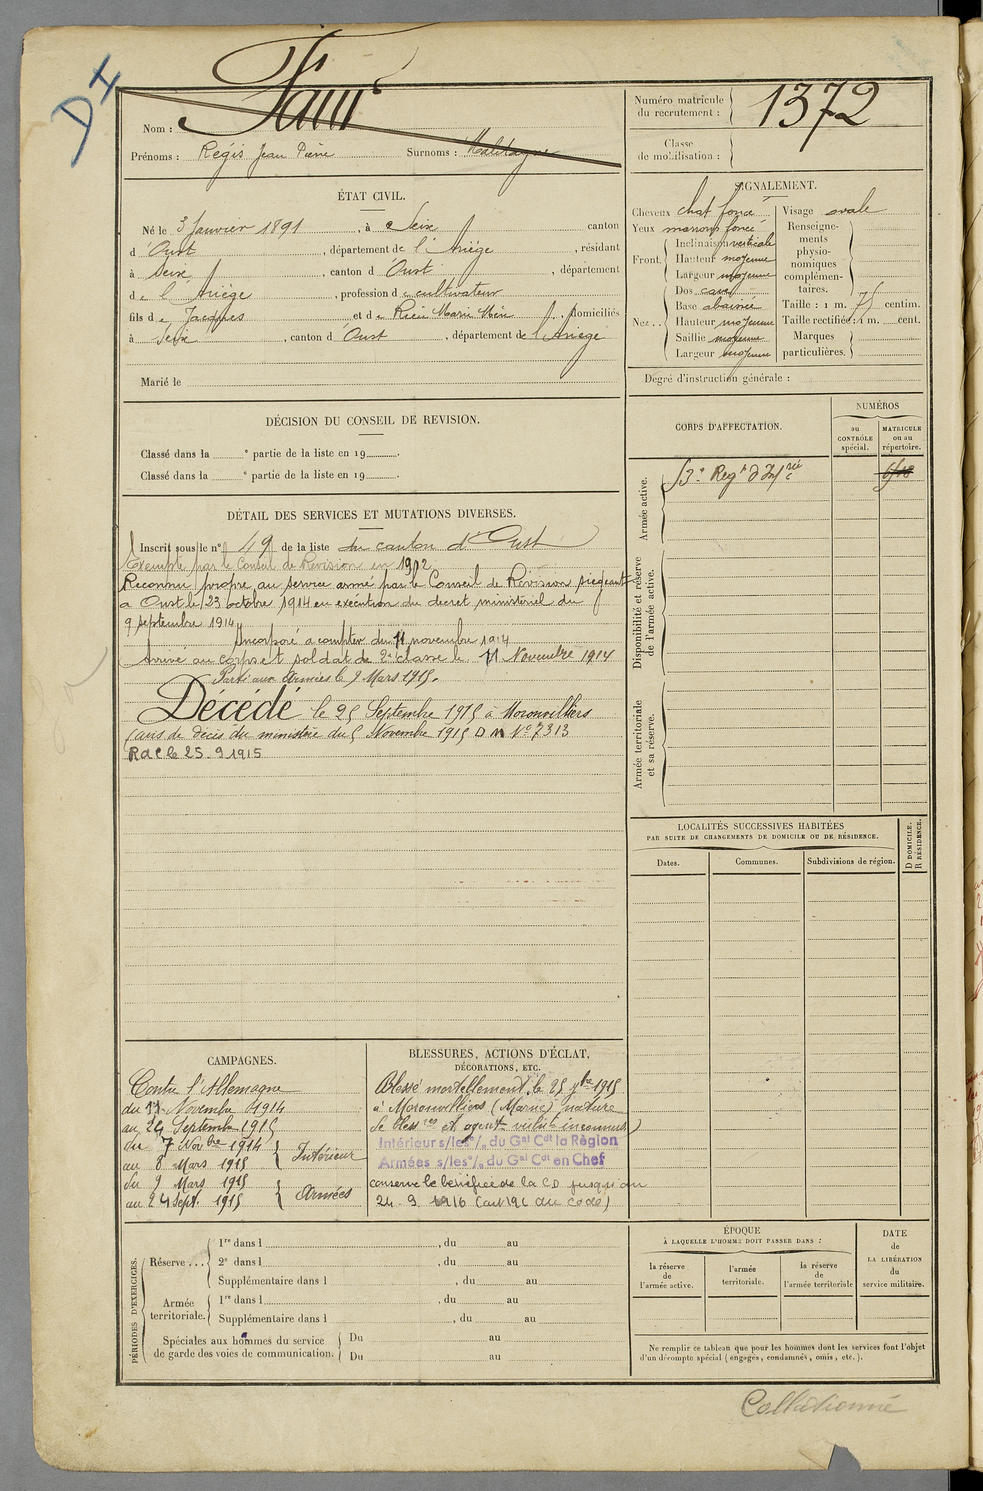 DI
Nom : Faur
Prénoms : Régis Jean Pierre Surnoms :
Numéro matricule du recrutement : 1372
Classe de mobilisation :
ÉTAT CIVIL.
Né le 3 Janvier 1891, à Seix canton
d'Oust, département de l'Ariège, résidant
à Seix, canton d'Oust, département
de l'Ariège, profession de cultivateur
fils de Jacques et de Rieu Marie domiciliés
à Seix, canton d'Oust, département de l'Ariège
Marié le
SIGNALEMENT.
Cheveux chat foncé
Yeux marrons foncé
Front. Inclinaison verticale
Hauteur moyenne
Largeur moyenne
Nez.. Dos cave
Base abaissée
Hauteur moyenne
Saillie moyenne
Largeur moyenne
Visage ovale
Renseignements physionomiques complémentaires.
Taille : 1 m. 75 centim.
Taille rectifiée : 1 m. cent.
Marques particulières.
Degré d'instruction générale :
DÉCISION DU CONSEIL DE REVISION.
Classé dans la e partie de la liste en 19 .
Classé dans la e partie de la liste en 19 .
DÉTAIL DES SERVICES ET MUTATIONS DIVERSES.
Inscrit sous le n° 49 de la liste du canton d'Oust
Exempté par le Conseil de Revision en 1912
Reconnu propre au service armé par le Conseil de Révision siégeant
à Oust le 23 octobre 1914 en exécution du decret ministériel du
9 septembre 1914
Incorporé a compter du 11 novembre 1914
Arrivé au corps et soldat de 2e classe le 11 Novembre 1914
Parti aux Armées le 9 Mars 1915.
Décédé le 25 Septembre 1915 à Moronvilliers
(avis de décès du ministère du 5 Novembre 1915 D M N° 7313
R d C le 25.9.1915
CORPS D'AFFECTATION.
NUMÉROS
au CONTRÔLE spécial.
MATRICULE ou au répertoire.
Armée active.
53e Regt d'Infrie
Disponibilité et réserve de l'armée active.
Armée territoriale et sa réserve.
LOCALITÉS SUCCESSIVES HABITÉES
PAR SUITE DE CHANGEMENTS DE DOMICILE OU DE RÉSIDENCE.
Dates.
Communes.
Subdivisions de région.
D DOMICILE.
R RÉSIDENCE.
CAMPAGNES.
Contre l'Allemagne
du 11 Novembre 1914
au 24 Septembre 1915
du 7 Novbre 1914
au 8 Mars 1915 Intérieur
du 9 Mars 1915
au 24 Sept. 1915 Armées
BLESSURES, ACTIONS D'ÉCLAT,
DÉCORATIONS, ETC.
Blessé mortellement le 25 7bre 1915
à Moronvilliers (Marne) nature
de bless res et agent vulnt inconnus
Intérieur s/les°/. du Gal Cdt la Règion
Armées s/les°/. du Gal Cdt en Chef
conserve le bénéfice de la CD jusqu'au
24.9.1916 (art 196 du code)
PÉRIODES D'EXERCICES.
Réserve ...
1re dans l , du au
2e dans l , du au
Supplémentaire dans l , du au
Armée territoriale.
1re dans l , du au
Supplémentaire dans l , du au
Spéciales aux hommes du service de garde des voies de communication.
Du au
Du au
ÉPOQUE
À LAQUELLE L'HOMME DOIT PASSER DANS :
la réserve de l'armée active.
l'armée territoriale.
la réserve de l'armée territoriale
DATE de LA LIBÉRATION du service militaire.
Ne remplir ce tableau que pour les hommes dont les services font l'objet
d'un décompte spécial (engagés, condamnés, omis, etc.).
Collationné